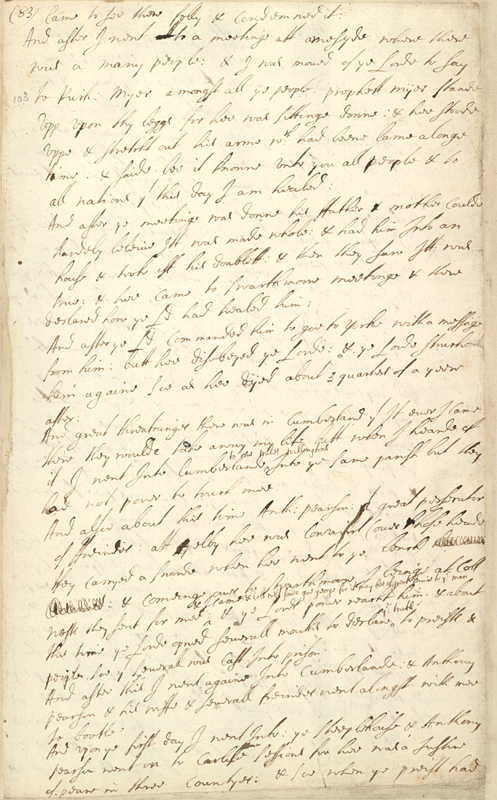 (83) Came to see there folly & Condemned it:
And after I went to a meetinge att amesyde where there
was a many people: & I was moved of ye Lorde to say
193
to Rich: Myer amongst all ye people: prophett myer stande
uppe upon thy legges for hee was sittinge doune: & hee stoode
uppe & stretcht out his arme wch had beene lame a longe
time: & saide: bee it knowne unto you all people & to
all nations yt this day I am healed:
And after ye meetinge was donne his ffather & mother coulde
hardely beleive Itt was made whole: & had him Into an
house & tooke off his doublett: & then they saw Itt was
true: & hee came to Swarthmore meetinge & there
declared how ye Ld had healed him:
And after ye Ld Commanded him to goe to Yorke with a message
from him: butt hee disobeyed ye Lorde: & ye Lorde strucke
him againe Soe as hee dyed about 3 quarters of a yeere
after:
And great threatninges there was in Cumberland yt If ever I came
there they woulde take away my life butt when I hearde
it I went Into Cumberlande Into ye same parish but they
to one miles
had not power to touch mee
And alsoe about this time Anth: pearson: a great persecutor
of freindes: att Apelby hee was Convinct over whose heade
they carryed a sworde when hee went to ye bench
: & comeinge over to Swarthmore I beinge att Coll
Wests they sent for mee & I came & Coll: West saide goe George for it may bee of great service to ye man
& ye Lords power reacht him: & about
this time ye Lorde opned severall mouths to declare ye truth to preists &
people: soe yt severall was Cast Into prison
And after this I went againe Into Cumberlande: & Anthony
pearson & his wiffe & severall freindes went alongst with mee
to bootle
And upon ye first day I went Into: ye steeplehouse & Anthony
pearson went on to Carlisle sessions for hee was a Justice
of peace in three Countyes: & soe when ye preist had